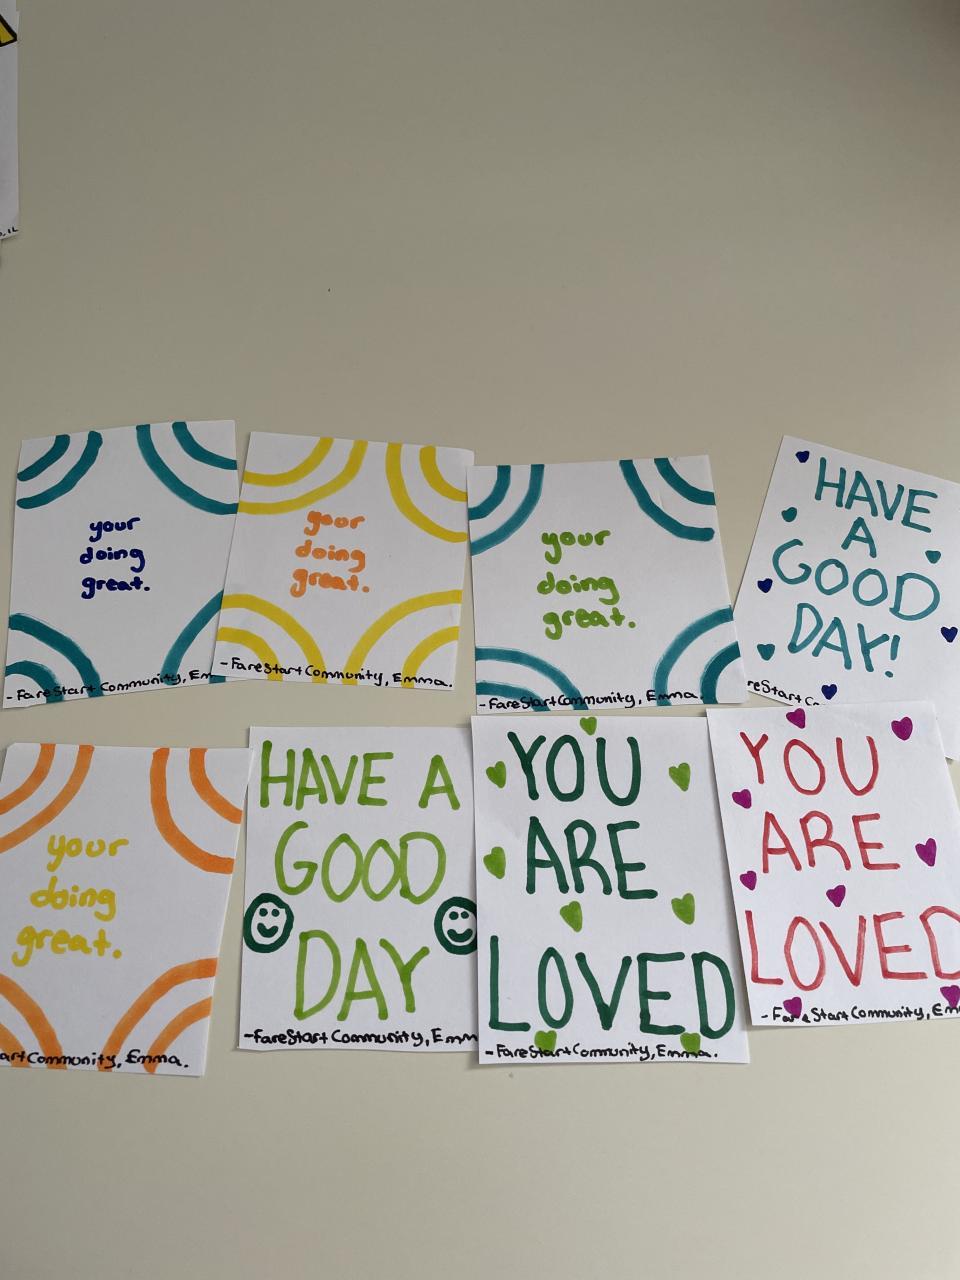 your
doing
great.
-FareStart Community, Em
your
doing
great.
-FareStart Community, Emma.
your
doing
great.
-FareStart Community, Emma.
HAVE
A
GOOD
DAY!
reStart
your
doing
great.
artCommunity, Emma.
HAVE A
GOOD
DAY
-FareStart Community, Emm
YOU
ARE
LOVED
-FareStart Community, Emma.
YOU
ARE
LOVED
-FareStart Community, Em